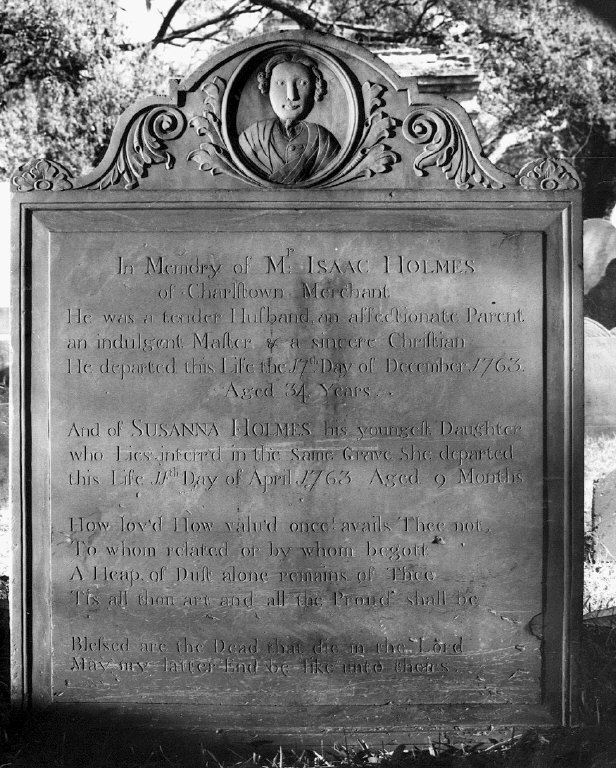 In Memory of Mr. ISAAC HOLMES
of Charlſtown Merchant
He was a tender Huſband, an affectionate Parent
an indulgent Maſter, & a sincere Chriſtian
He departed this Life the 17th Day of December 1763.
Aged 34 Years.
And of SUSANNA HOLMES his youngeſt Daughter
who Lies interr'd in the Same Grave She departed
this Life 11th Day of April 1763 Aged 9 Months
How lov'd How valu'd once avails Thee not,
To whom related or by whom begott
A Heap of Duſt alone remains of Thee
Tis all thou art and all the Proud shall be
Bleſsed are the Dead that die in the Lord
May my latter End be like unto theirs